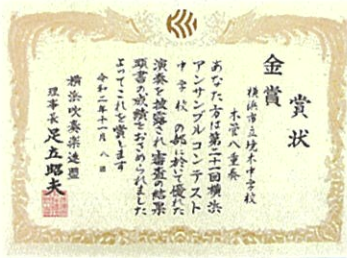 賞状
金賞
横浜市立境木中学校
木管八重奏
あなた方は第二十一回横浜
アンサンブルコンテスト
中学校の部に於て優れた
演奏を披露され審査の結果
頭書の成績をおさめられました
よってこれを賞します
令和二年十一月八日
横浜吹奏楽連盟
理事長 足立昭夫